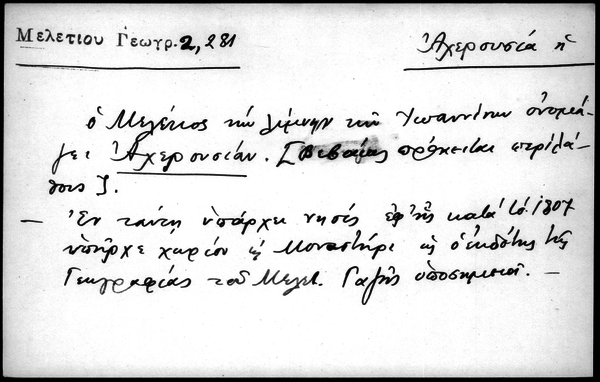 Μελετίου Γεωγρ. 2, 281
Ἀχερουσία ἡ
ὁ Μελέτιος τὴν λίμνην τῶν Ἰωαννίνων ὀνομά-
ζει Ἀχερουσίαν. [Βεβαίως πρόκειται περὶ λά-
θους].
— Ἐν ταύτῃ ὑπάρχει νησίς ἐφ' ἧς κατὰ τό 1807
ὑπῆρχε χωρίον κ Μοναστήρι ὡς ὁ ἐκδότης τῆς
Γεωγραφίας τοῦ Μελετ. Γαζῆς ὑποσημειοῖ. —